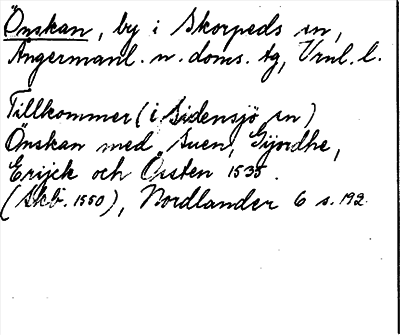 Önskan, by i Skorpeds sn,
Ångermanl. n. doms. tg, Vrnl. l.
Tillkommer (i Sidensjö sn)
Önskan med Suen, Gijordhe,
Erijck och Össten 1535.
(Skb. 1550), Nordlander 6 s. 192